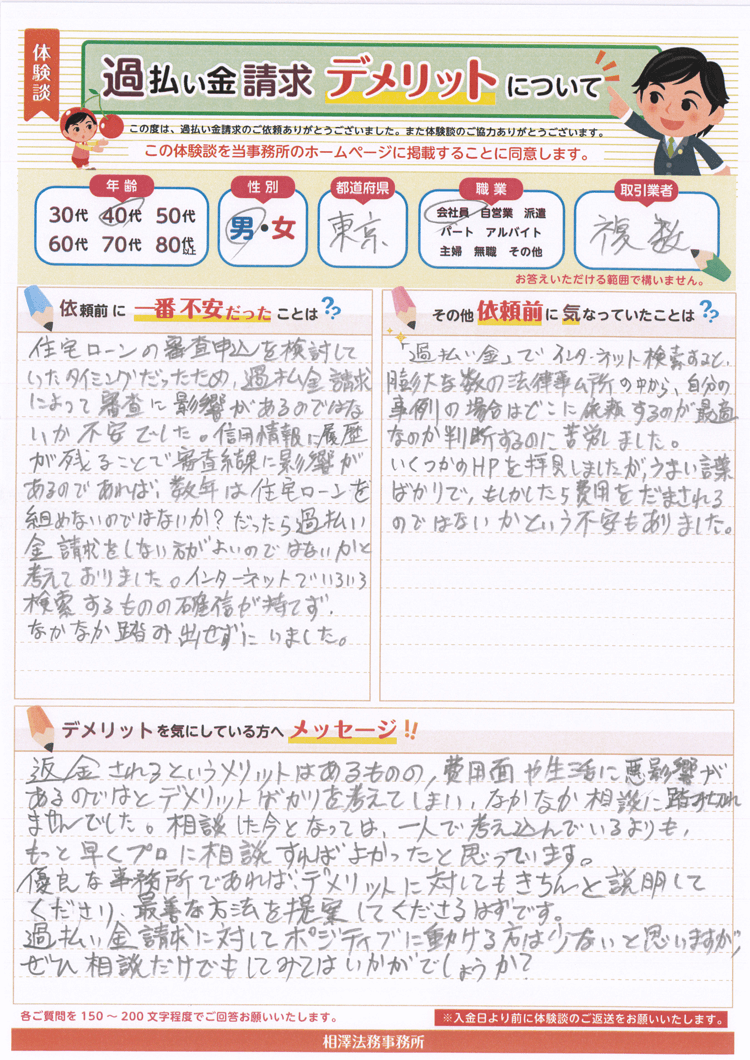 体験談
過払い金請求 デメリットについて
この度は、過払い金請求のご依頼ありがとうございました。また体験談のご協力ありがとうございます。
この体験談を当事務所のホームページに掲載することに同意します。
年齢
30代 40代 50代
60代 70代 80代以上
性別
男・女
都道府県
東京
職業
会社員 自営業 派遣
パート アルバイト
主婦 無職 その他
取引業者
複数
お答えいただける範囲で構いません。
依頼前に一番不安だったことは??
住宅ローンの審査申込を検討して
いたタイミングだったため、過払金請求
によって審査に影響があるのではな
いか不安でした。信用情報に履歴
が残ることで審査結果に影響が
あるのであれば、数年は住宅ローンを
組めないのではないか?だったら過払い
金請求をしない方がよいのではないかと
考えておりました。インターネットでいろいろ
検索するものの確信が持てず、
なかなか踏み出せずにいました。
その他依頼前に気なっていたことは??
「過払い金」でインターネット検索すると、
膨大な数の法律事ム所の中から、自分の
事例の場合はどこに依頼するのが最適
なのか判断するのに苦労しました。
いくつかのHPを拝見しましたが、うまい言葉
ばかりで、もしかしたら費用をだまされる
のではないかという不安もありました。
デメリットを気にしている方へメッセージ!!
返金されるというメリットはあるものの、費用面や生活に悪影響が
あるのではとデメリットばかりを考えてしまい、なかなか相談に踏み切れ
ませんでした。相談した今となっては、一人で考え込んでいるよりも、
もっと早くプロに相談すればよかったと思っています。
優良な事務所であればデメリットに対してもきちんと説明して
くださり、最善な方法を提案してくださるはずです。
過払い金請求に対してポジティブに動ける方は少ないと思いますが、
ぜひ相談だけでもしてみてはいかがでしょうか?
各ご質問を150〜200文字程度でご回答お願いいたします。
※入金日より前に体験談のご返送をお願いいたします。
相澤法務事務所